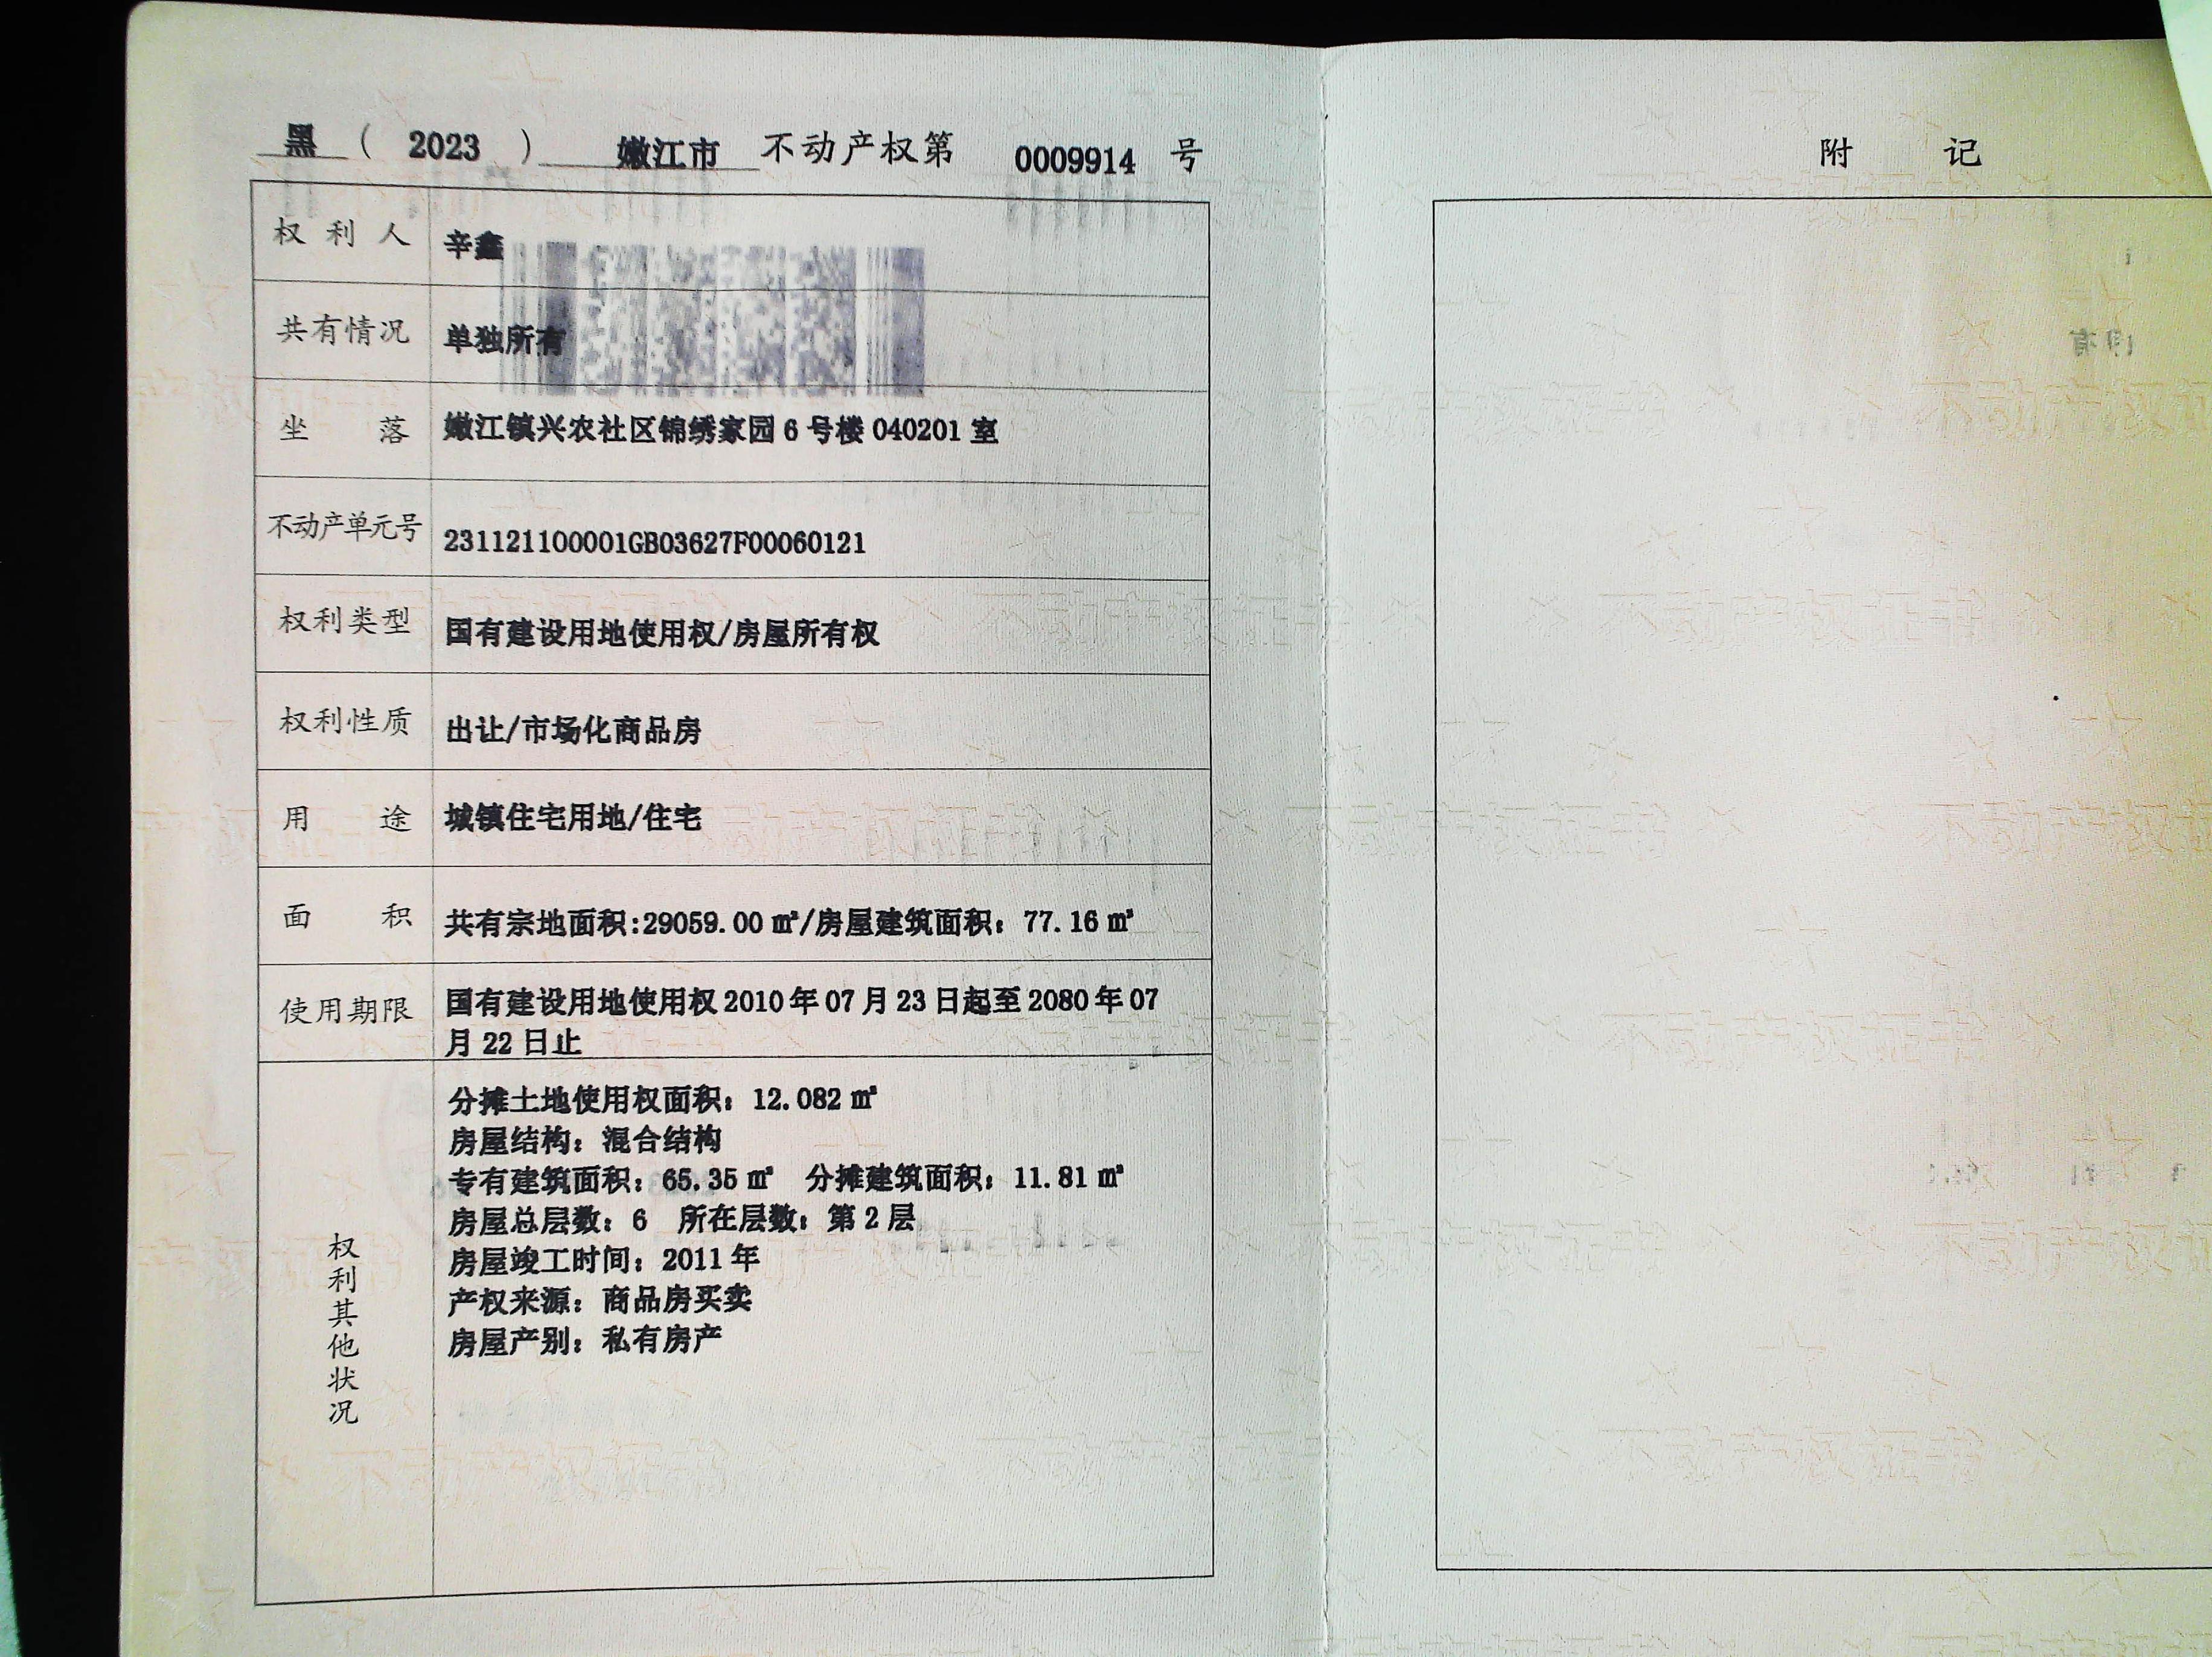 黑（2023）嫩江市不动产权第0009914号
权利人 辛鑫
共有情况 单独所有
坐落 嫩江镇兴农社区锦绣家园6号楼040201室
不动产单元号 231121100001GB03627F00060121
权利类型 国有建设用地使用权/房屋所有权
权利性质 出让/市场化商品房
用途 城镇住宅用地/住宅
面积 共有宗地面积:29059.00㎡/房屋建筑面积：77.16㎡
使用期限 国有建设用地使用权2010年07月23日起至2080年07
月22日止
权利其他状况
分摊土地使用权面积：12.082㎡
房屋结构：混合结构
专有建筑面积：65.35㎡ 分摊建筑面积：11.81㎡
房屋总层数：6 所在层数：第2层
房屋竣工时间：2011年
产权来源：商品房买卖
房屋产别：私有房产
附记